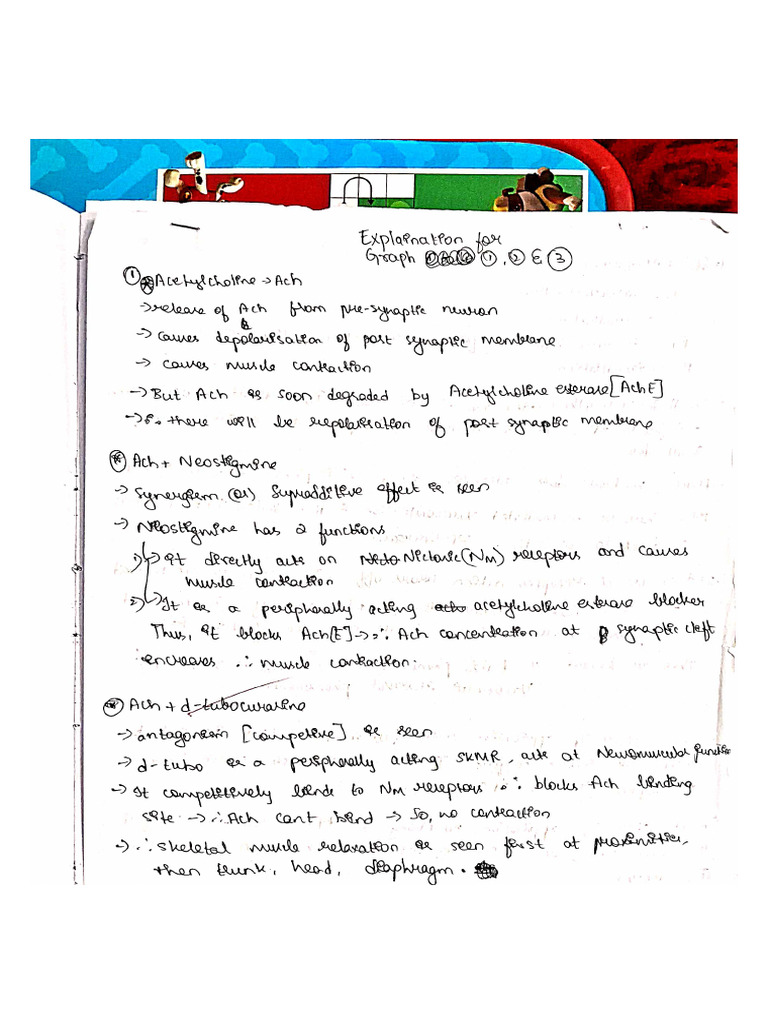 Explaination for
Graph ①, ② & ③
① * Acetylcholine → Ach
→ release of Ach from pre-synaptic neuron
→ causes depolarisation of post synaptic membrane
→ causes muscle contraction
→ But Ach is soon degraded by Acetylcholine esterase [AchE]
→ So there will be repolarisation of post synaptic membrane
* Ach + Neostigmine
→ Synergism (or) Supraadditive effect is seen
→ Neostigmine has 2 functions
1) → It directly acts on Nictonic (NM) receptors and causes
muscle contraction
2) → It is a peripherally acting acetylcholine esterase blocker
Thus, it blocks Ach[E] → ∴ Ach concentration at synaptic cleft
increases ∴ muscle contraction.
* Ach + d-tubocurarine
→ antagonism [competive] is seen
→ d-tubo is a peripherally acting SKMR, acts at Neuromucular junction
→ It competitively binds to NM receptors ∴ blocks Ach binding
site → ∴ Ach can't bind → So, no contraction
→ ∴ skeletal muscle relaxation is seen first at
then trunk, head, diaphragm.